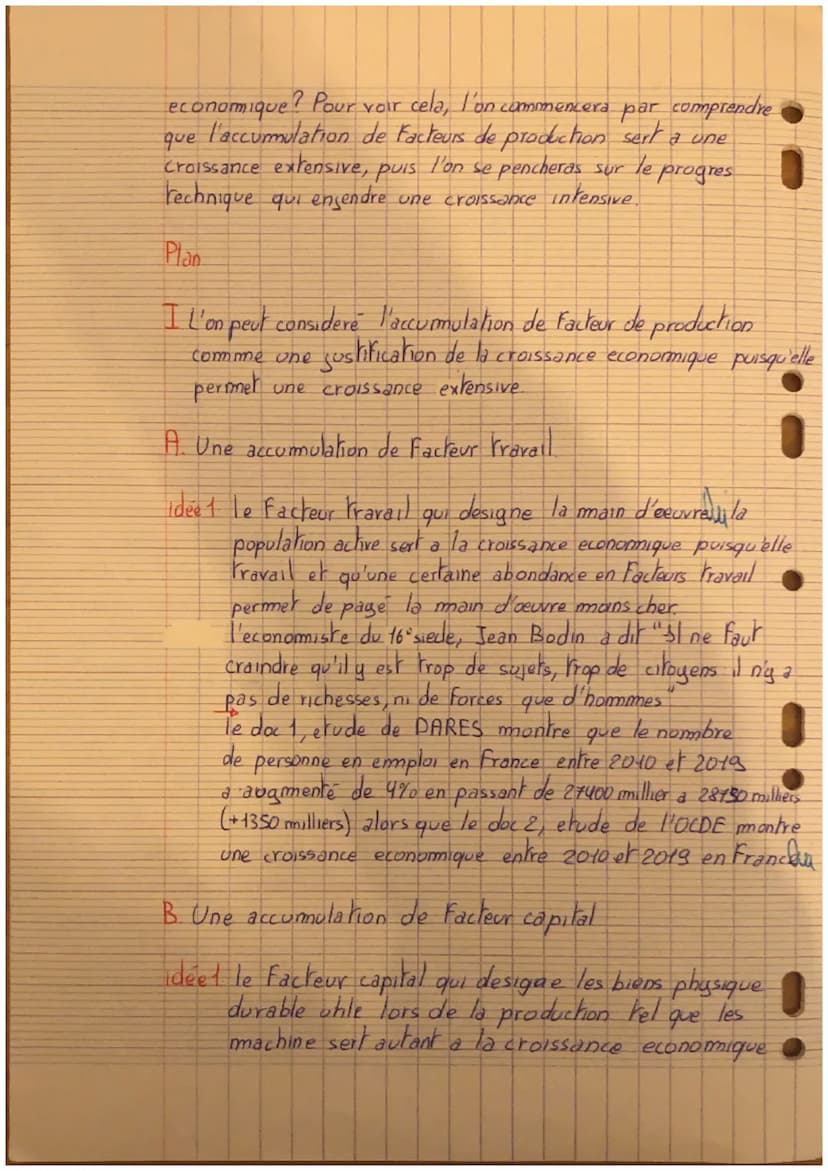 economique? Pour voir cela, l'on commencera par comprendre
que l'accumulation de Facteurs de production sert a une
croissance extensive, puis l'on se pencheras sur le progres
technique qui engendre une croissance intensive.
Plan
I L'on peut considere l'accumulation de Facteur de production
comme une justification de la croissance economique puisqu'elle
permet une croissance extensive
A. Une accumulation de Facteur travail
idée 1 le Facteur travail qui designe la main d'oeuvre la
population active sert a la croissance economique puisqu'elle
travail et qu'une certaine abondance en Facteurs travail
permet de payé la main d'œuvre moins cher.
l'economiste du 16e siecle, Jean Bodin a dit "Il ne faut
craindre qu'il y est trop de sujets, trop de citoyens il n'y a
pas de richesses, ni de forces que d'hommes"
le doc 1, etude de DARES montre que le nombre
de personne en emploi en France entre 2010 et 2019
a augmenté de 4% en passant de 27400 millier a 28750 milliers
(+1350 milliers) alors que le doc 2, etude de l'OCDE montre
une croissance economique entre 2010 et 2019 en France
B. Une accumulation de Facteur capital
idée 1 le Facteur capital qui designe les biens physique
durable utile lors de la production tel que les
machine sert autant a la croissance economique